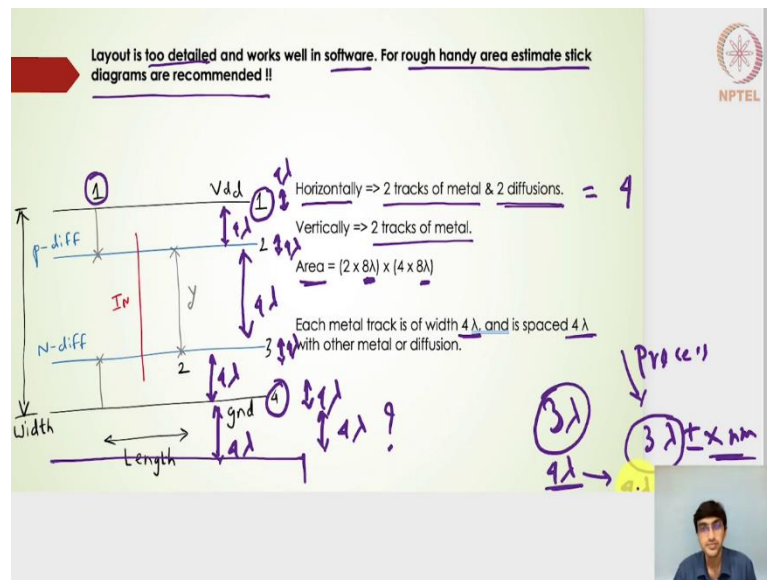 Layout is too detailed and works well in software. For rough handy area estimate stick
diagrams are recommended !!
NPTEL
1
Vdd
1
4λ
Horizontally => 2 tracks of metal & 2 diffusions. = 4
4λ
Vertically => 2 tracks of metal.
P-diff
2
4λ
Area = (2 x 8λ) x (4 x 8λ)
In
y
4λ
Each metal track is of width 4 λ. and is spaced 4 λ
with other metal or diffusion.
N-diff
3
4λ
2
4λ
Process
4
4λ
gnd
Width
4λ
4λ ?
3λ
3λ ± x nm
Length
4λ →